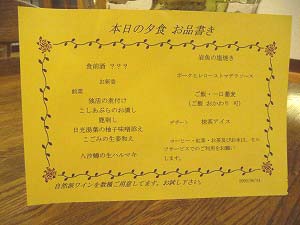 本日の夕食 お品書き
食前酒 ？？？
お新香
前菜
独活の煮付け
こしあぶらのお浸し
鹿刺し
日光湯葉の柚子味噌添え
こごみの生姜和え
八汐鱒の生ハルマキ
岩魚の塩焼き
ポークヒレソーストマデラソース
ご飯・一口蕎麦
(ご飯 おかわり 可)
デザート 抹茶アイス
コーヒー・紅茶・お茶及びお水は、セル
フサービスでのご利用をお願い
します。
自然派ワインを数種ご用意してます。お試し下さい。